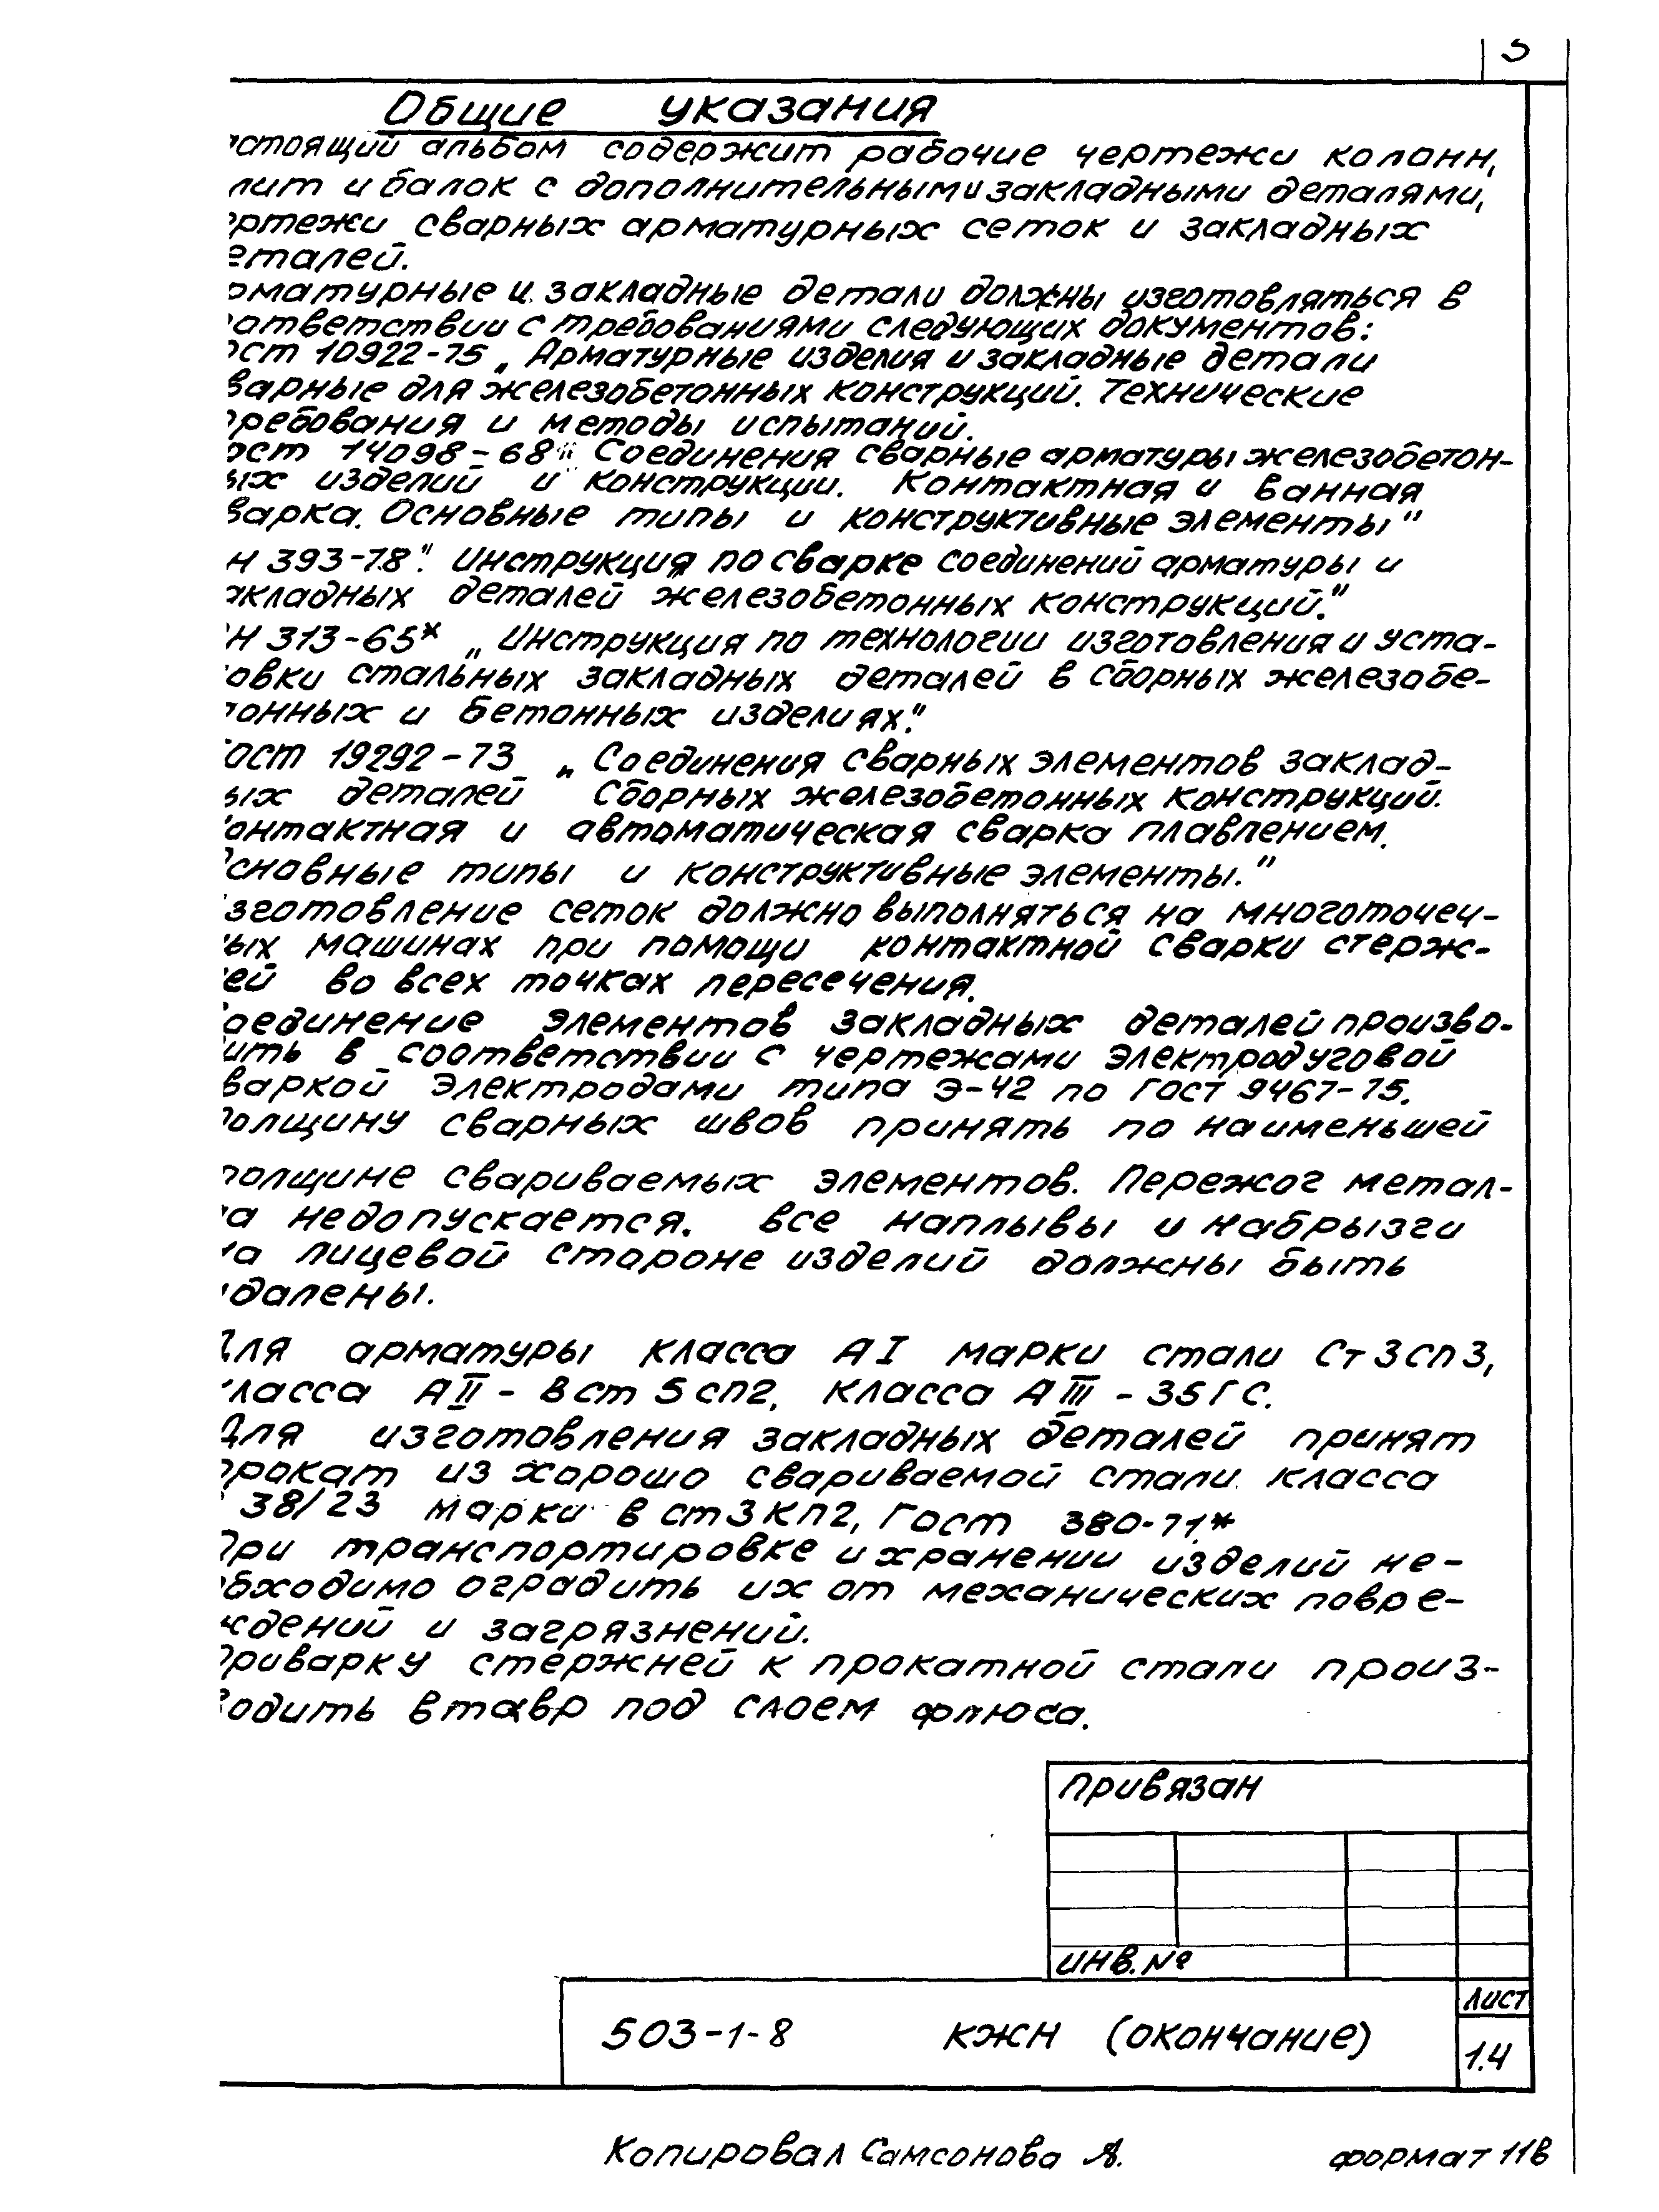 5
Общие указания
стоящий альбом содержит рабочие чертежи колонн,
лит и балок с дополнительными закладными деталями,
ертежи сварных арматурных сеток и закладных
еталей.
рматурные и закладные детали должны изготовляться в
ответствии с требованиями следующих документов:
ост 10922-75 „Арматурные изделия и закладные детали
варные для железобетонных конструкций. Технические
ребования и методы испытаний.
ост 14098-68" Соединения сварные арматуры железобетон-
ых изделий и конструкции. Контактная и ванная
варка. Основные типы и конструктивные элементы"
Н 393-78". Инструкция по сварке соединений арматуры и
акладных деталей железобетонных конструкций."
Н 313-65* „Инструкция по технологии изготовления и уста-
овки стальных закладных деталей в сборных железобе-
тонных и бетонных изделиях."
Гост 19292-73 „Соединения сварных элементов заклад-
ых деталей Сборных железобетонных конструкций.
Контактная и автоматическая сварка плавлением.
Основные типы и конструктивные элементы."
Изготовление сеток должно выполняться на многоточеч-
ных машинах при помощи контактной сварки стерж-
ней во всех точках пересечения.
Соединение элементов закладных деталей произво-
дить в соответствии с чертежами электродуговой
варкой электродами типа Э-42 по Гост 9467-75.
Толщину сварных швов принять по наименьшей
толщине свариваемых элементов. Пережог метал-
ла недопускается. Все наплывы и набрызги
на лицевой стороне изделий должны быть
удалены.
Для арматуры класса АI марки стали Ст3сп3,
класса АII - Вст5сп2, класса АIII - 35ГС.
Для изготовления закладных деталей принят
прокат из хорошо свариваемой стали класса
38/23 марки в ст3кп2, Гост 380-71.*
При транспортировке и хранении изделий не-
обходимо оградить их от механических повре-
ждений и загрязнений.
Приварку стержней к прокатной стали произ-
водить втавр под слоем флюса.
Привязан
инв.№
503-1-8 КЖН (окончание)
Лист
1.4
Копировал Самсонова А. формат 11в